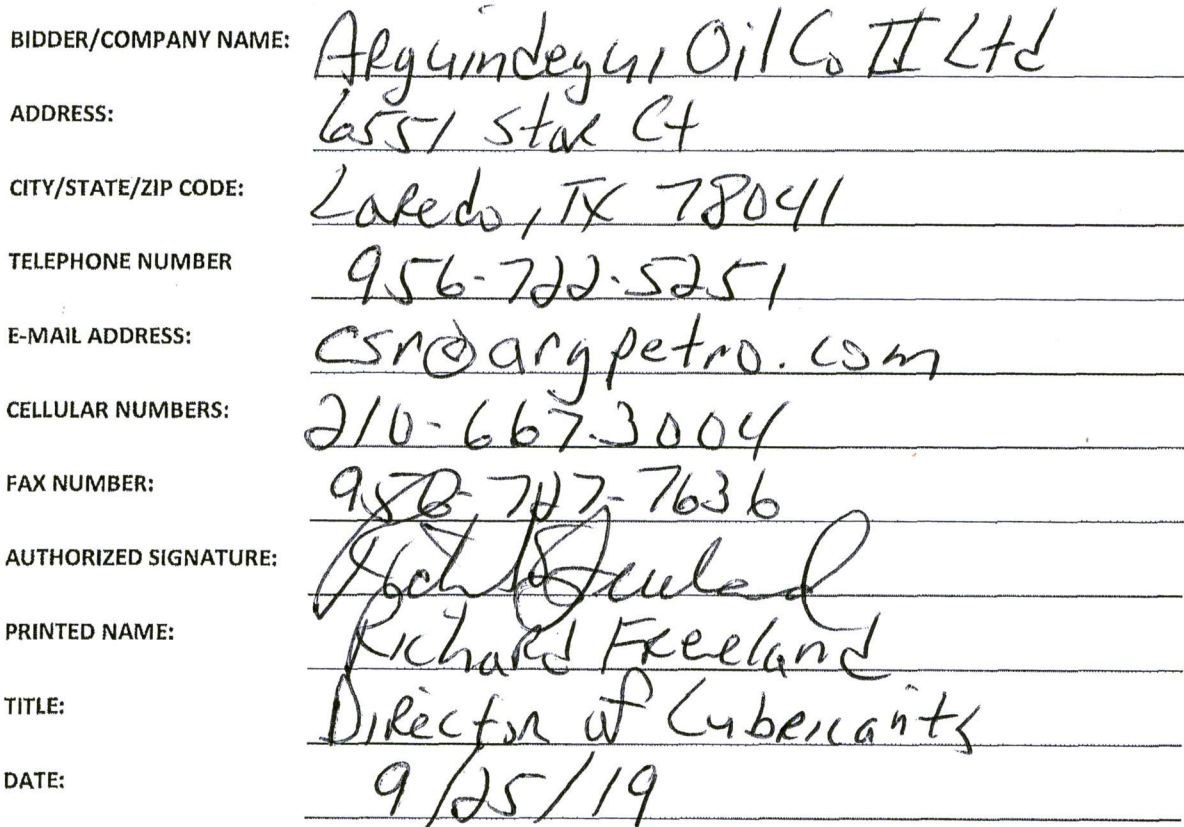 BIDDER/COMPANY NAME: Arguindegui Oil Co II Ltd
ADDRESS: 6551 Star Ct
CITY/STATE/ZIP CODE: Laredo, TX 78041
TELEPHONE NUMBER 956-722-5251
E-MAIL ADDRESS: csr@argpetro.com
CELLULAR NUMBERS: 210-667-3004
FAX NUMBER: 7636
AUTHORIZED SIGNATURE:
PRINTED NAME: Richard Freeland
TITLE: Director of Lubericants
DATE: 9/25/19